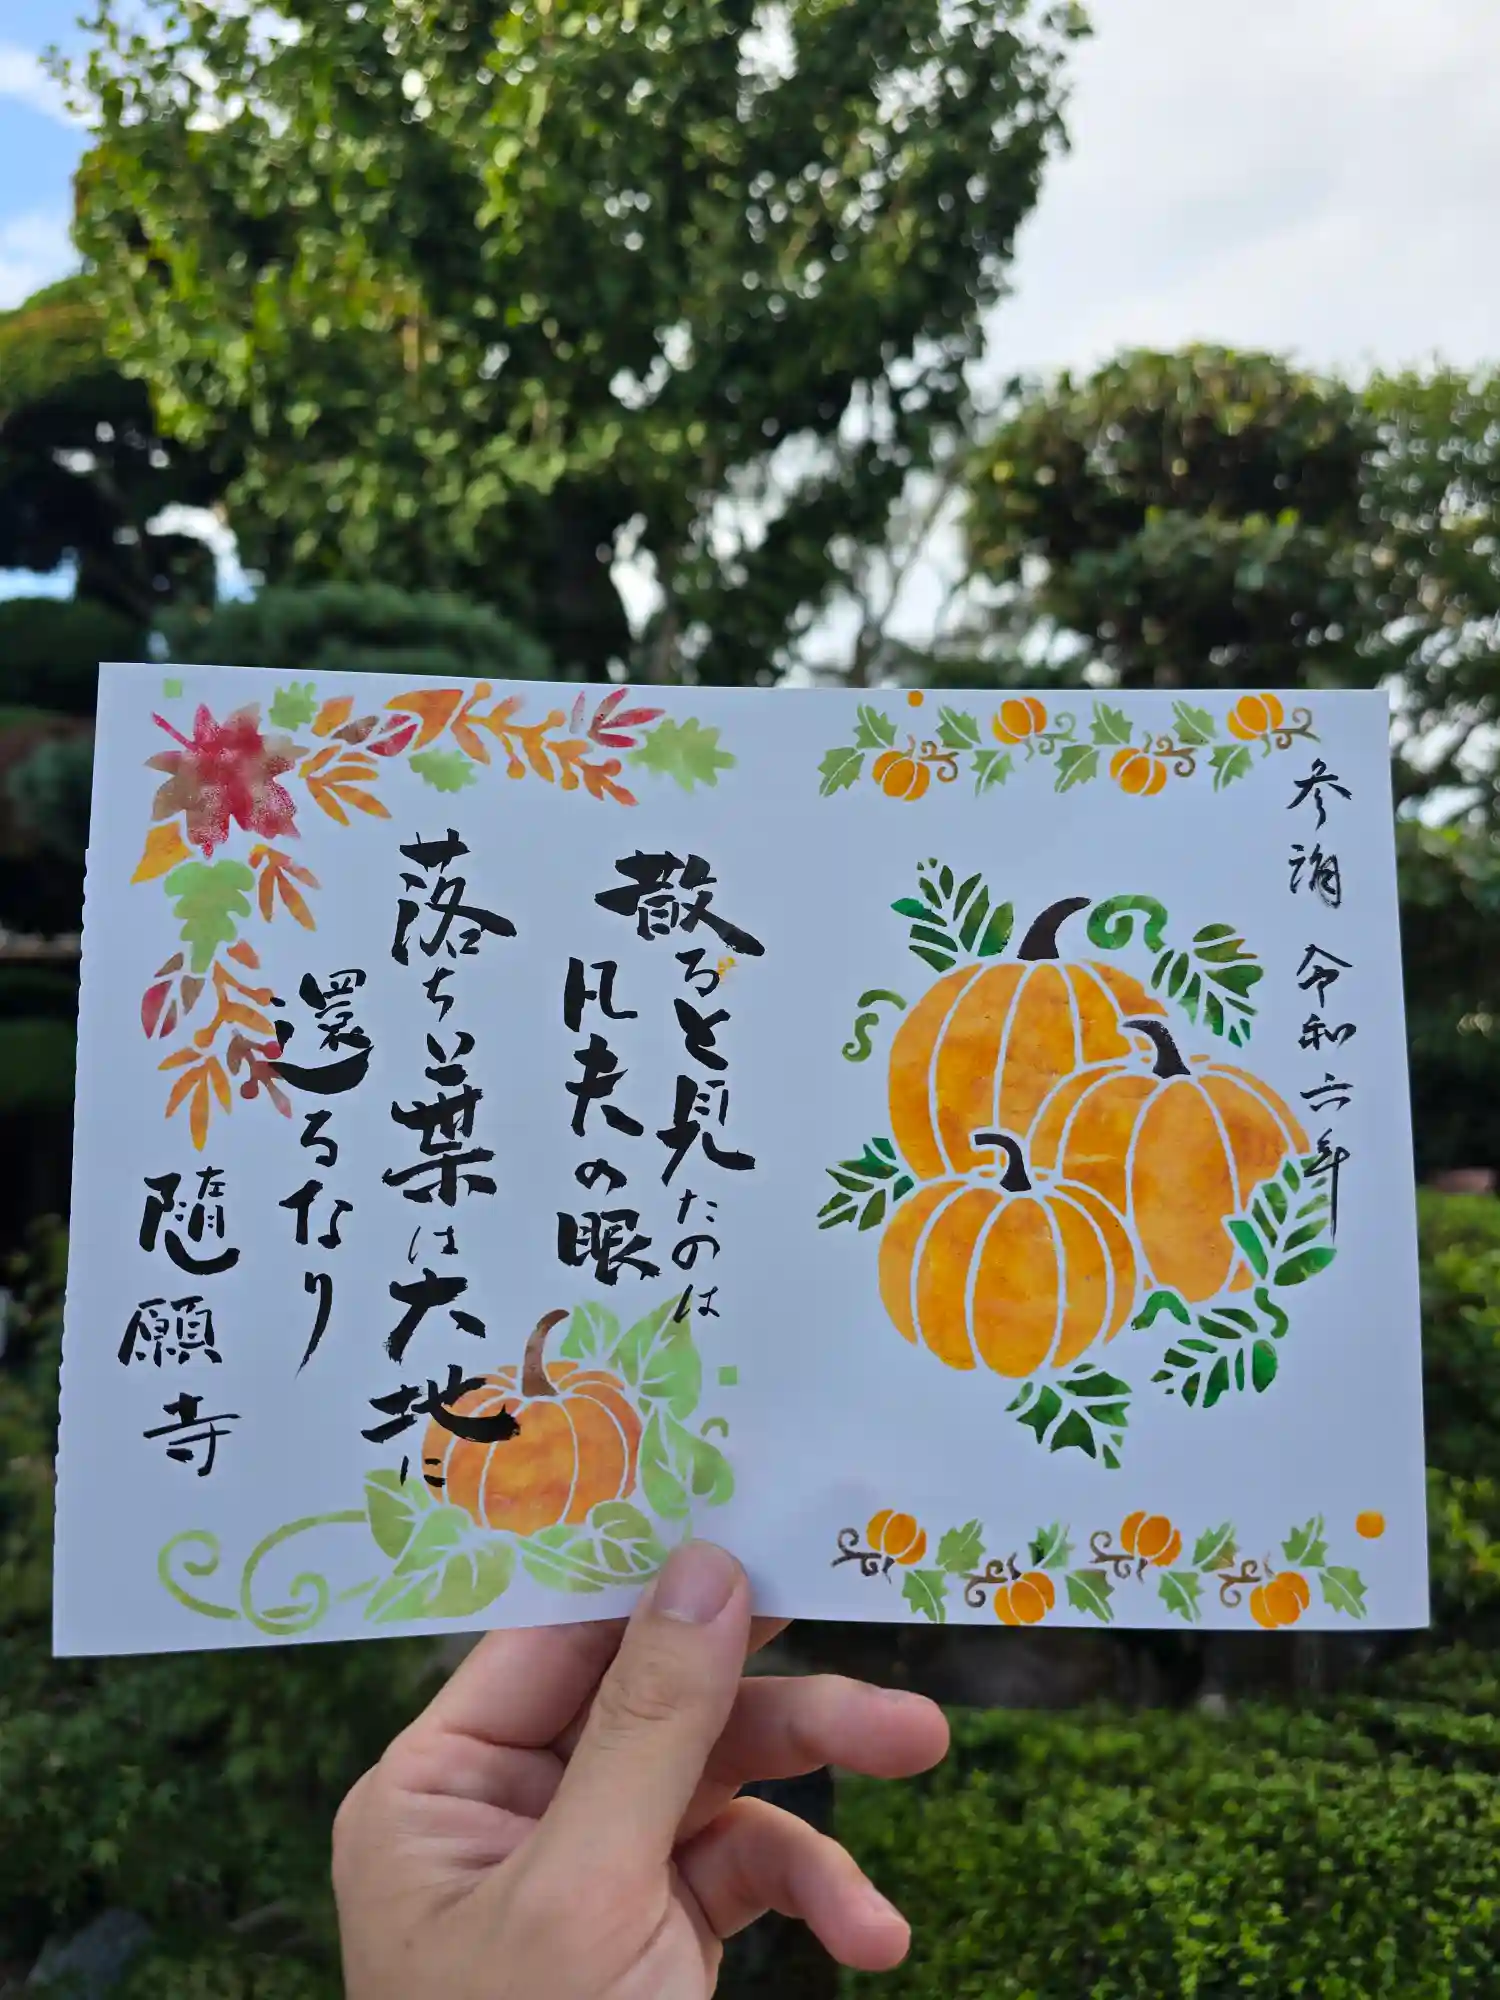 参詣 令和六年
散ると見たのは
凡夫の眼
落ち葉は大地に
還るなり
随願寺